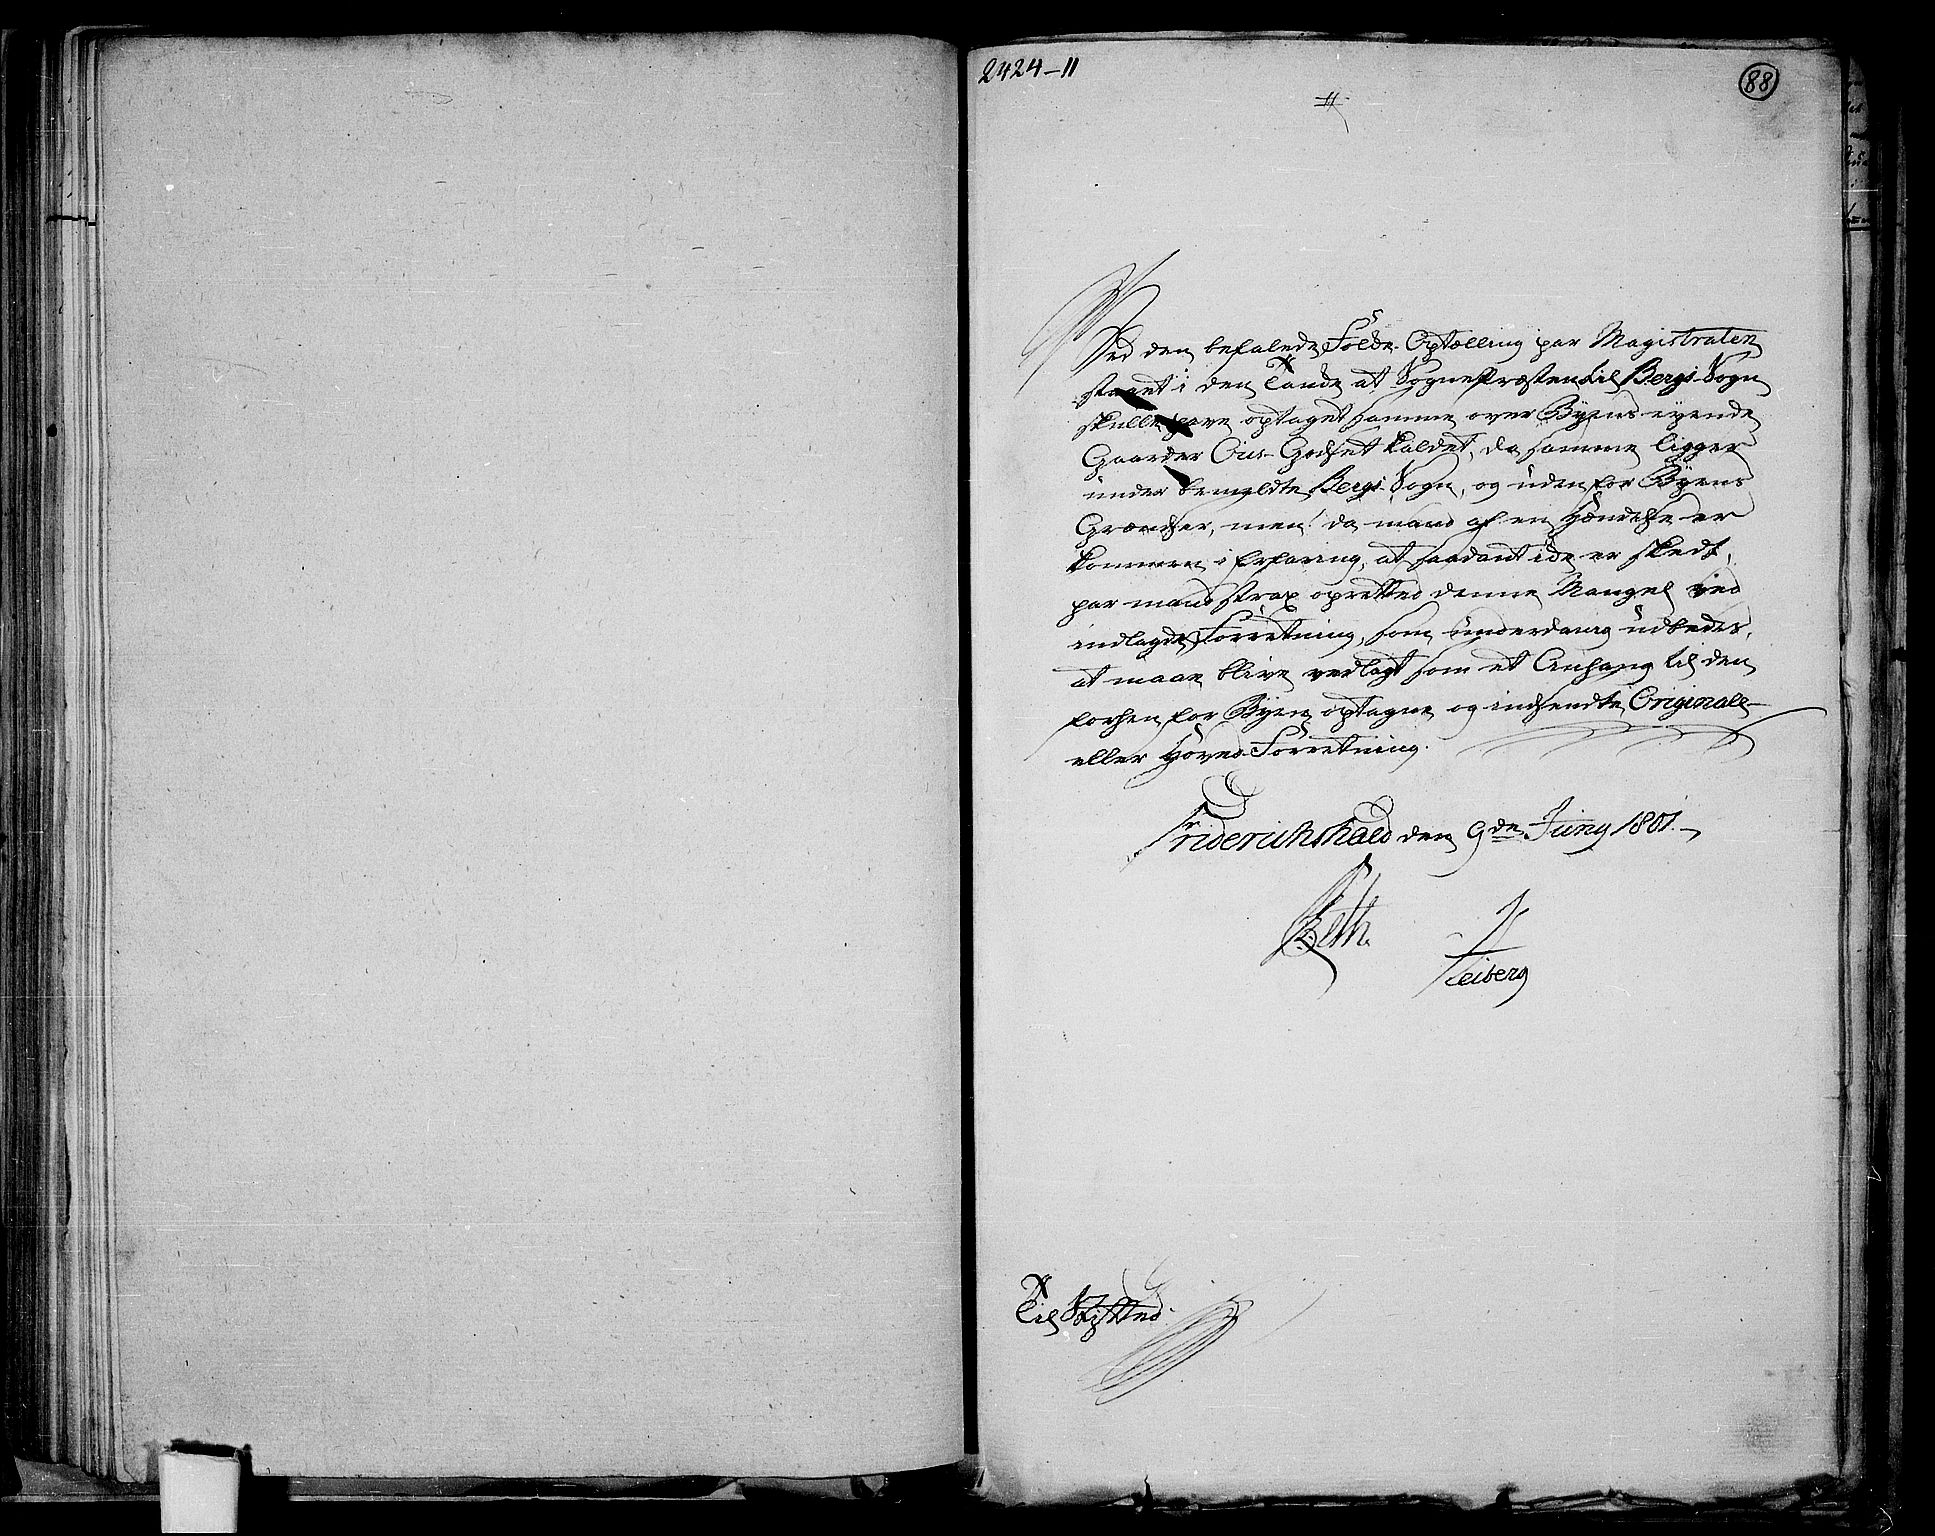 2424-11
88
Ved den befalede Folke Optælling har Magistraten
staaet i den Tanke at Sognepræsten til Bergs Sogn
skulle have optaget samme over Byens eyende
Gaarder Ous-Godset kaldet, da samme ligger
under bemeldte Bergs Sogn, og uden for Byens
Grændser, men da mand af en Hændelse er
kommen i Erfaring, at saadant icke er skedt,
har mand strax opretted denne Mangel ved
indlagde Forretning, som underdanig udbedes,
at maae blive vedlagt som et Anhang til den
forhen for Byen optagne og indsendte Originale
eller Hoved Forretning.
Friderichshald den 9de Juny 1801.
Heiberg
Til Stiftted